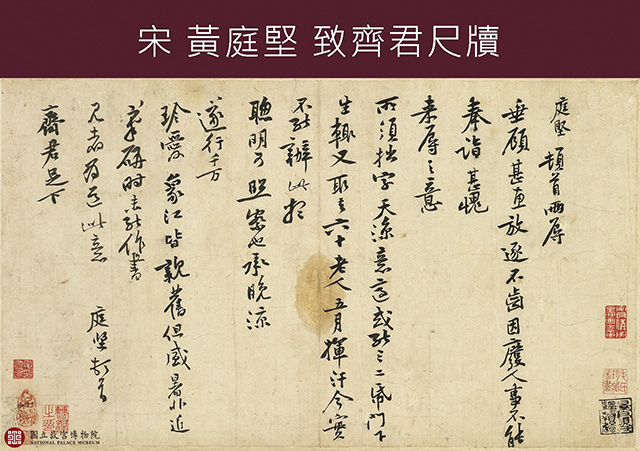 宋 黃庭堅 致齊君尺牘
庭堅頓首兩辱
垂顧甚惠放逐不齒因廢人事不能
奉詣甚愧
来辱之意
所須拙字天涼意適或能三二紙門下
生輒又取去六十老人五月揮汗今實
不能辦此想
聰明可照察也承晚涼
遂行千万
珍愛象江皆親舊但盛暑非近
筆研時未能作書
見者為道此意
庭堅頓首
齊君足下
國立故宮博物院
NATIONAL PALACE MUSEUM